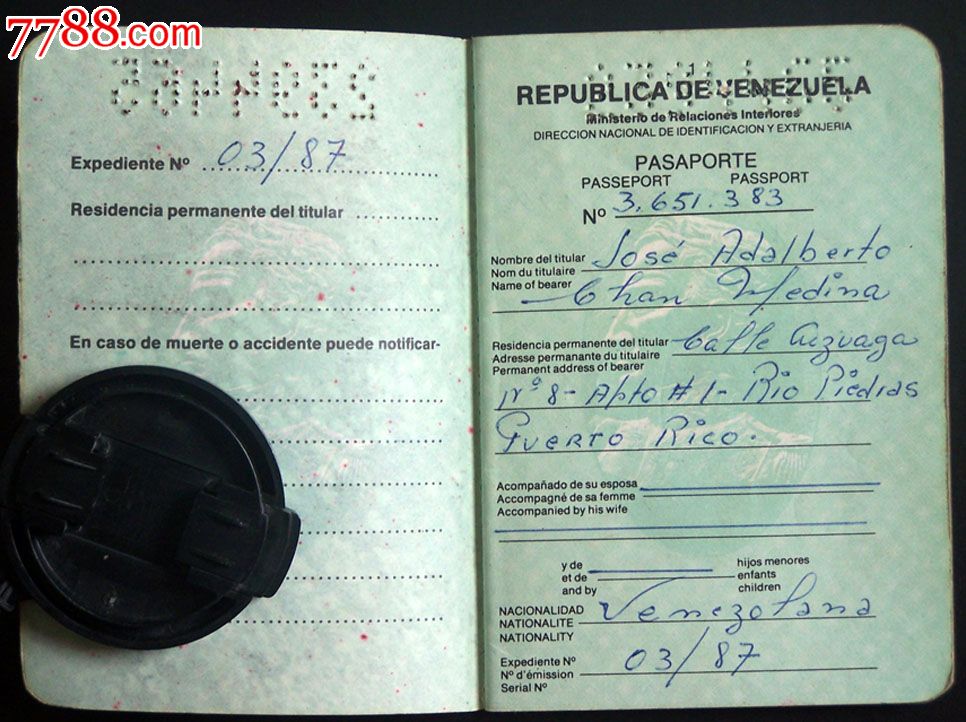 7788.com
Expediente Nº 03/87
Residencia permanente del titular
En caso de muerte o accidente puede notificar-
1
REPUBLICA DE VENEZUELA
Ministerio de Relaciones Interiores
DIRECCION NACIONAL DE IDENTIFICACION Y EXTRANJERIA
PASAPORTE
PASSEPORT PASSPORT
Nº 3.651.383
Nombre del titular José Adalberto
Nom du titulaire
Name of bearer Chan Medina
Residencia permanente del titular Calle Auzuaga
Adresse permanante du titulaire
Permanent address of bearer
Nº 8 - Apto # 1 - Rio Piedras
Puerto Rico.
Acompañado de su esposa
Accompagné de sa femme
Accompanied by his wife
y de hijos menores
et de enfants
and by children
NACIONALIDAD Venezolana
NATIONALITE
NATIONALITY
Expediente Nº 03/87
Nº d'émission
Serial Nº